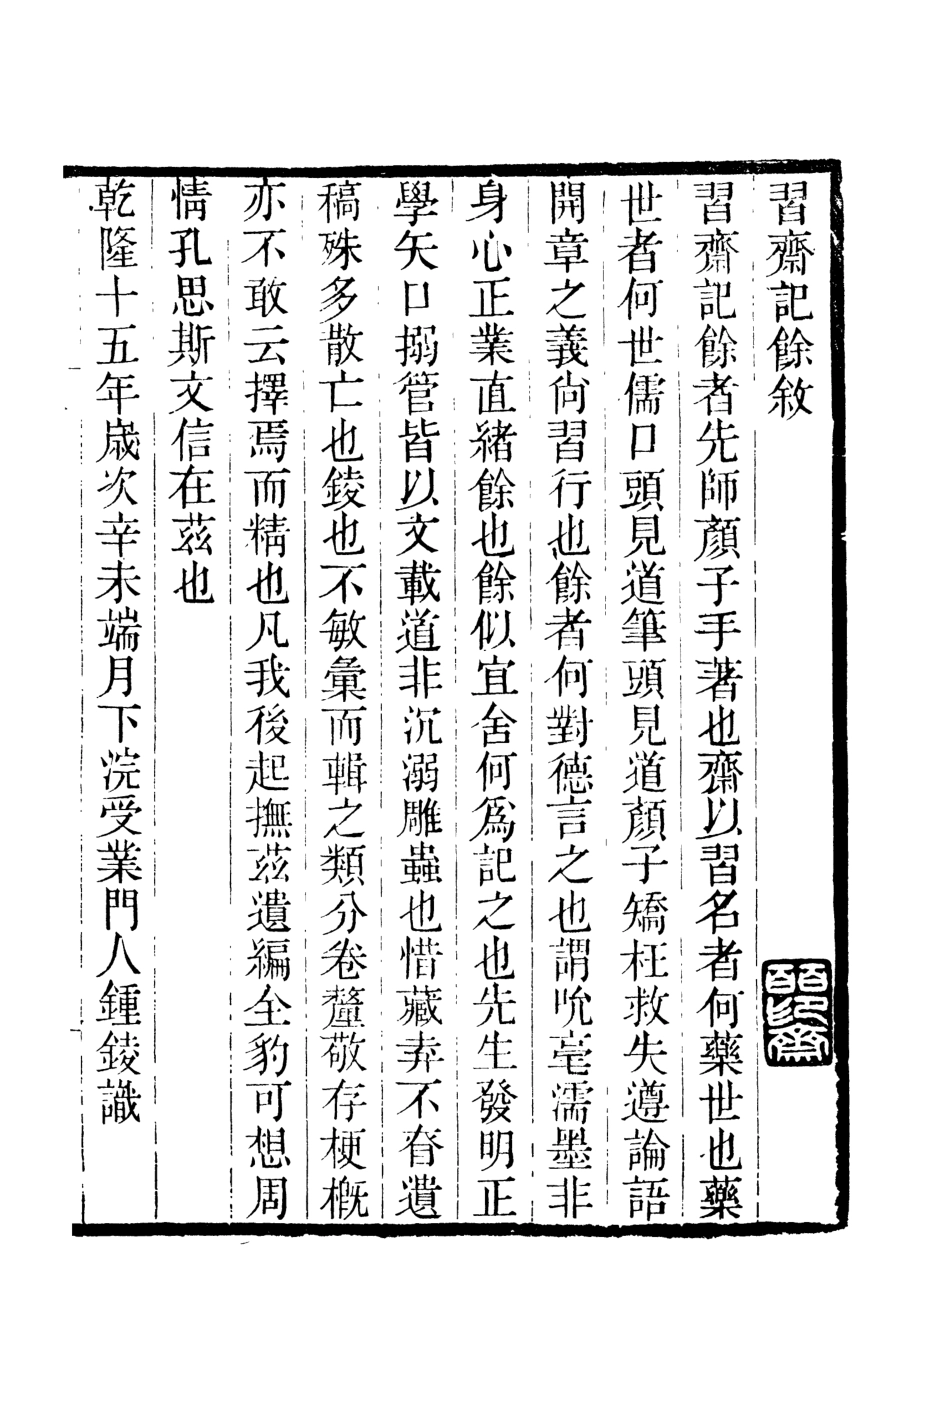 習齋記餘敘
習齋記餘者先師顏子手著也齋以習名者何藥世也藥
世者何世儒口頭見道筆頭見道顏子矯枉救失遵論語
開章之義尙習行也餘者何對德言之也謂吮毫濡墨非
身心正業直緒餘也餘似宜舍何爲記之也先生發明正
學矢口搦管皆以文載道非沉溺雕蟲也惜藏弆不眘遺
稿殊多散亡也錂也不敏彙而輯之類分卷釐敬存梗概
亦不敢云擇焉而精也凡我後起撫茲遺編全豹可想周
情孔思斯文信在茲也
乾隆十五年歲次辛未端月下浣受業門人鍾錂識